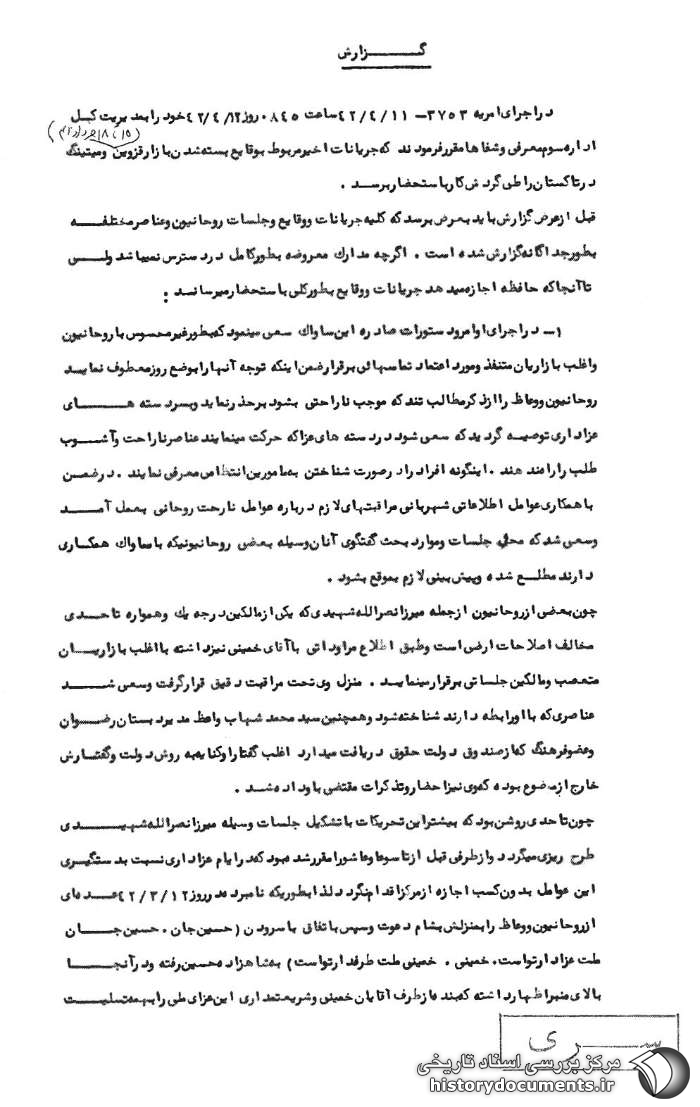 گـــــــزارش
در اجرای امریه ۳۷۵۳ – ۴۲/۴/۱۱ ساعت ۰۸۴۵ روز ۴۲/۴/۱۲ خود را بمدیریت کـــل
اداره سوم معرفی و شفاها مقرر فرمودند که جریانات اخیر مربوط بوقایع بسته شدن بازار قزوین و میتینگ
در تاکستان را طی گردش کار باستحضار برسد .
قبل از عرض گزارش باید بعرض برسد که کلیه جریانات و وقایع و جلسات روحانیون و عناصر مختلفـــه
بطور جداگانه گزارش شده است . اگرچه مدارک معروضه بطور کامل در دسترس نمیباشد ولـــی
تا آنجا که حافظه اجازه میدهد جریانات و وقایع بطور کلی باستحضار میرسانــد :
۱– در اجرای اوامر و دستورات صادره این ساواک سعی مینمود که بطور غیر محسوس با روحانیون
و اغلب بازاریان متنفذ و مورد اعتماد تماسهائی برقرار ضمن اینکه توجه آنها را بوضع روز معطوف نمایــد
روحانیون و وعاظ را از ذکر مطالب تند که موجب ناراحتی بشود بر حذر نماید و بسر دسته هـــــای
عزاداری توصیــه گردید که سعی شود در دسته های عزا که حرکت مینمایند عناصر ناراحت و آشـــوب
طلب را راه ندهند . اینگونه افراد را در صورت شناختن بمامورین انتظامی معرفی نمایند . در ضمــن
با همکاری عوامل اطلاعاتی شهربانی مراقبتهای لازم درباره عوامل ناراحت روحانی بعمل آمـــد
و سعی شد که محل جلسات و موارد بحث گفتگوی آنان وسیله بعضی روحانیونیکه با ساواک همکاری
دارند مطلـــع شده و پیش بینی لازم بموقع بشود .
چون بعضی از روحانیون از جمله میرزا نصرالله شهیدی که یکی از مالکین درجه یک و همواره تا حــدی
مخالف اصلاحات ارضی است و طبق اطلاع مراوداتی با آقای خمینی نیز داشته با اغلب بازاریـــان
متعصب و مالکین جلساتی برقرار مینمایــد . منزل وی تحت مراقبت دقیق قرار گرفت و سعی شـــد
عناصری که با او رابطه دارند شناخته شود و همچنین سید محمد شهاب واعظ مدیر دبستان رضـــوان
و عضو فرهنگ که از صندوق دولت حقوق دریافت میدارد اغلب گفتار او کنایه به روش دولت و گفتــارش
خارج از موضوع بوده که وی نیز احضار و تذکرات مقتضی باو داده شــد .
چون تا حدی روشن بود که بیشتر این تحریکات با تشکیل جلسات وسیله میرزا نصرالله شهیـــــدی
طرح ریزی میگردد و از طرفی قبل از تاسوعا و عاشورا مقرر شده بود که در ایام عزاداری نسبت بدستگیری
این عوامل بدون کسب اجازه از مرکز اقدام نگردد لذا بطوریکه نامبرده در روز ۴۲/۳/۱۲ عـــده ای
از روحانیون و وعاظ را بمنزلش بشام دعوت و سپس باتفاق با سرودن (حسین جان . حسین جـــان
ملت عزادار تو است . خمینی . خمینی ملت طرفدار تو است) بشاهزاده حسین رفته و در آنجـــــا
بالای منبر اظهار داشته که بنده از طرف آقایان خمینی و شریعتمداری این عزای ملی را بهمه تسلیــت
سری
مرکز بررسی اسناد تاریخی
historydocuments.ir